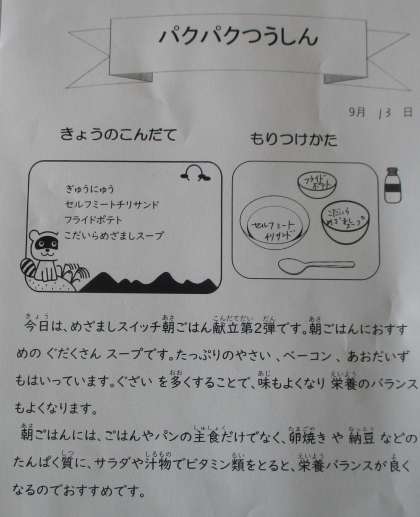 パクパクつうしん
9月 13 日
きょうのこんだて
もりつけかた
ぎゅうにゅう
セルフミートチリサンド
フライドポテト
こだいらめざましスープ
フライド
ポテト
セルフミート
チリサンド
こだいら
めざましスープ
今日は、めざましスイッチ朝ごはん献立第2弾です。朝ごはんにおすす
めの ぐだくさん スープです。たっぷりのやさい 、ベーコン 、あおだいず
もはいっています。ぐざい を多くすることで、味もよくなり 栄養のバランス
もよくなります。
朝ごはんには、ごはんやパンの主食だけでなく、卵焼き や 納豆 などの
たんぱく質に、サラダや汁物でビタミン類をとると、栄養バランスが良く
なるのでおすすめです。